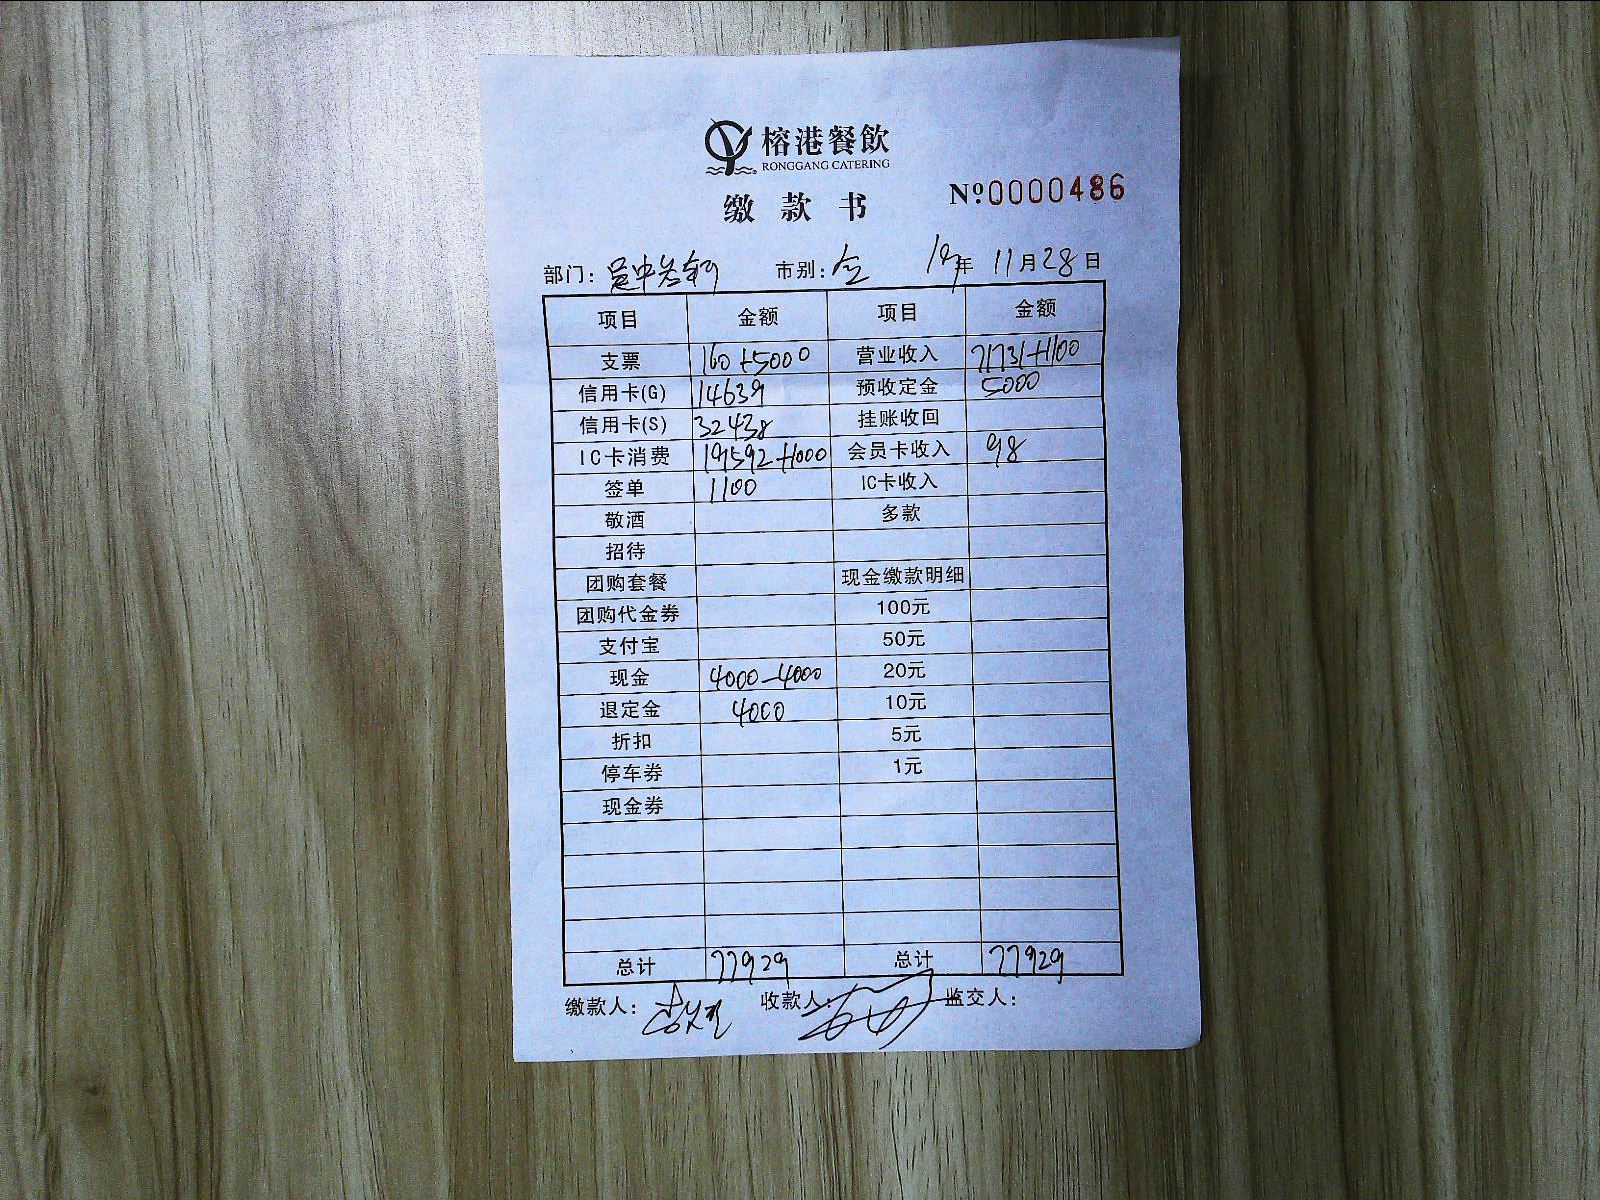 榕港餐飲
RONGGANG CATERING
缴款书
Nº0000486
部门: 市别:全 19年 11月28日
项目 金额 项目 金额
支票 160+5000 营业收入 71731+1100
信用卡(G) 14639 预收定金 5000
信用卡(S) 32438 挂账收回
IC卡消费 19592+1000 会员卡收入 98
签单 1100 IC卡收入
敬酒 多款
招待
团购套餐 现金缴款明细
团购代金券 100元
支付宝 50元
现金 4000-4000 20元
退定金 4000 10元
折扣 5元
停车券 1元
现金券
总计 77929 总计 77929
缴款人: 收款人: 监交人: